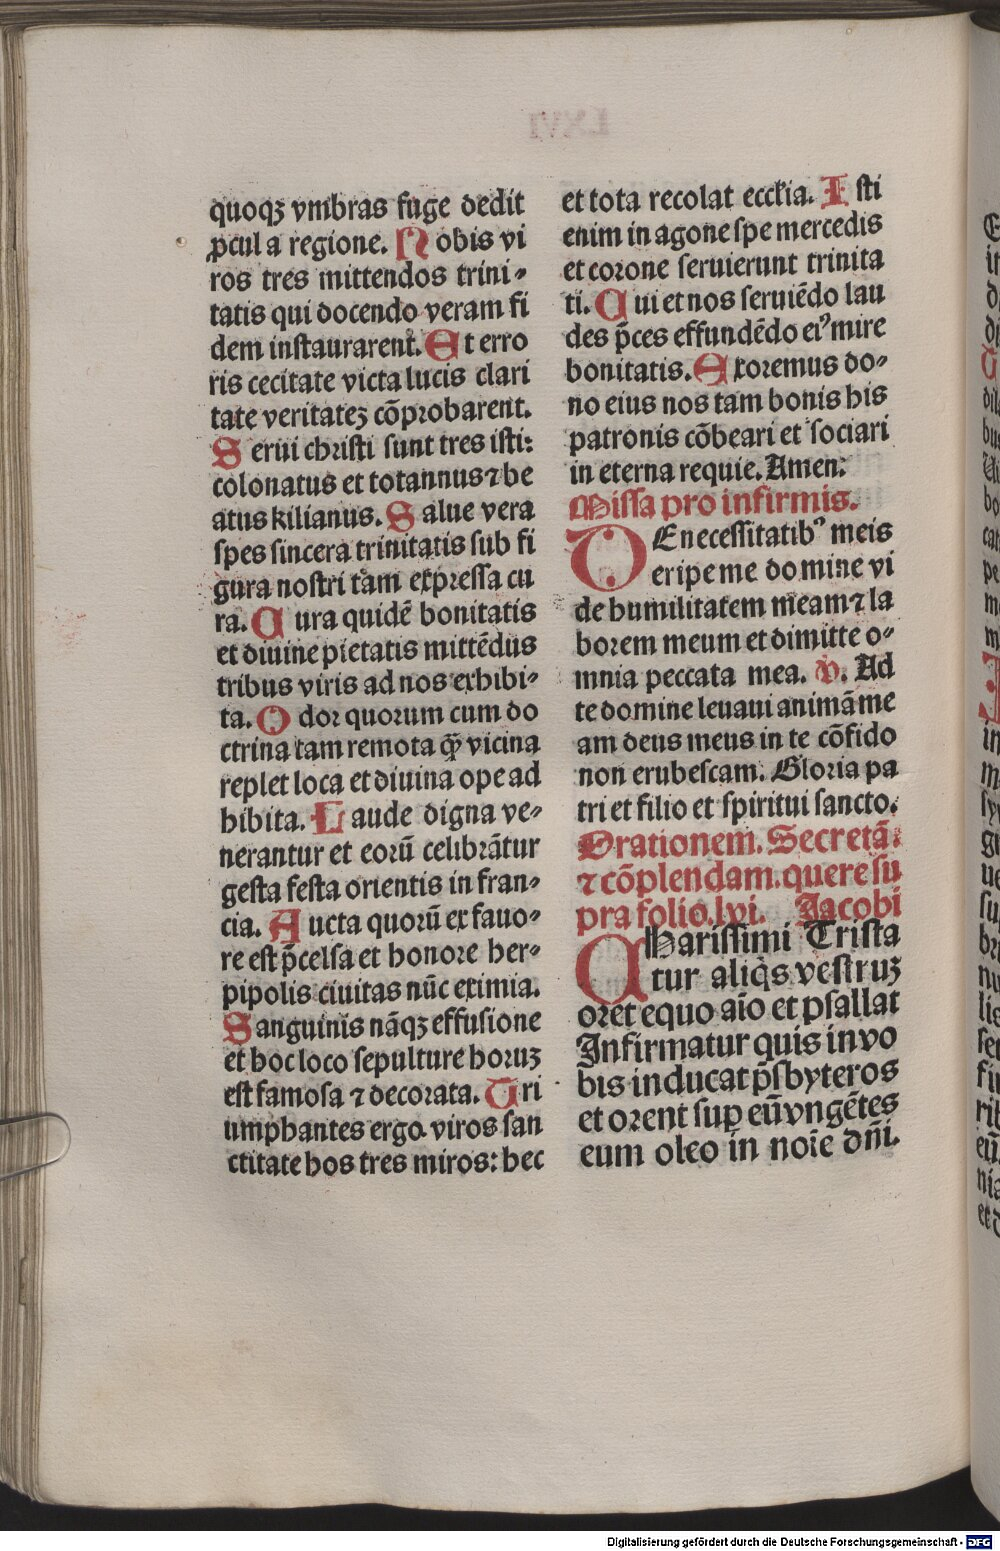 quoqꝫ vmbras fuge dedit
ꝓcul a regione. Nobis vi
ros tres mittendos trini⸗
tatis qui docendo veram fi
dem instaurarent. Et erro
ris cecitate victa lucis clari
tate veritateꝫ cōprobarent.
Serui christi sunt tres isti:
colonatus et totannus ⁊ be
atus kilianus. Salue vera
spes sincera trinitatis sub fi
gura nostri tam expressa cu
ra. Cura quidē bonitatis
et diuine pietatis mittēdus
tribus viris ad nos exhibi⸗
ta. Odor quorum cum do
ctrina tam remota qꝫ̄ vicina
replet loca et diuina ope ad
hibita. Laude digna ve⸗
nerantur et eorū celibrātur
gesta festa orientis in fran⸗
cia. Aucta quorū ex fauo⸗
re est p̄celsa et honore her⸗
pipolis ciuitas nūc eximia.
Sanguinis nāqꝫ effusione
et hoc loco sepulture horuꝫ
est famosa ⁊ decorata. Tri
umphantes ergo viros san
ctitate hos tres miros: hec
et tota recolat eccl'ia. Isti
enim in agone spe mercedis
et corone seruierunt trinita
ti. Cui et nos seruiēdo lau
des p̄ces effundēdo eiꝰ mire
bonitatis. Exoremus do⸗
no eius nos tam bonis his
patronis cōbeari et sociari
in eterna requie. Amen:
Missa pro infirmis.
DE necessitatibꝰ meis
eripe me domine vi
de humilitatem meam ⁊ la
borem meum et dimitte o⸗
mnia peccata mea. V. Ad
te domine leuaui animā me
am deus meus in te cōfido
non erubescam. Gloria pa
tri et filio et spiritui sancto.
Orationem. Secretā:
⁊ cōplendam. quere su
pra folio. lvi. Jacobi
CHarissimi Trista
tur aliq̇s vestruꝫ
oret equo aīo et psallat
Infirmatur quis in vo
bis inducat p̄sbyteros
et orent suꝑ eū vngētes
eum oleo in noīe dn̄i.
Digitalisierung gefördert durch die Deutsche Forschungsgemeinschaft - DFG